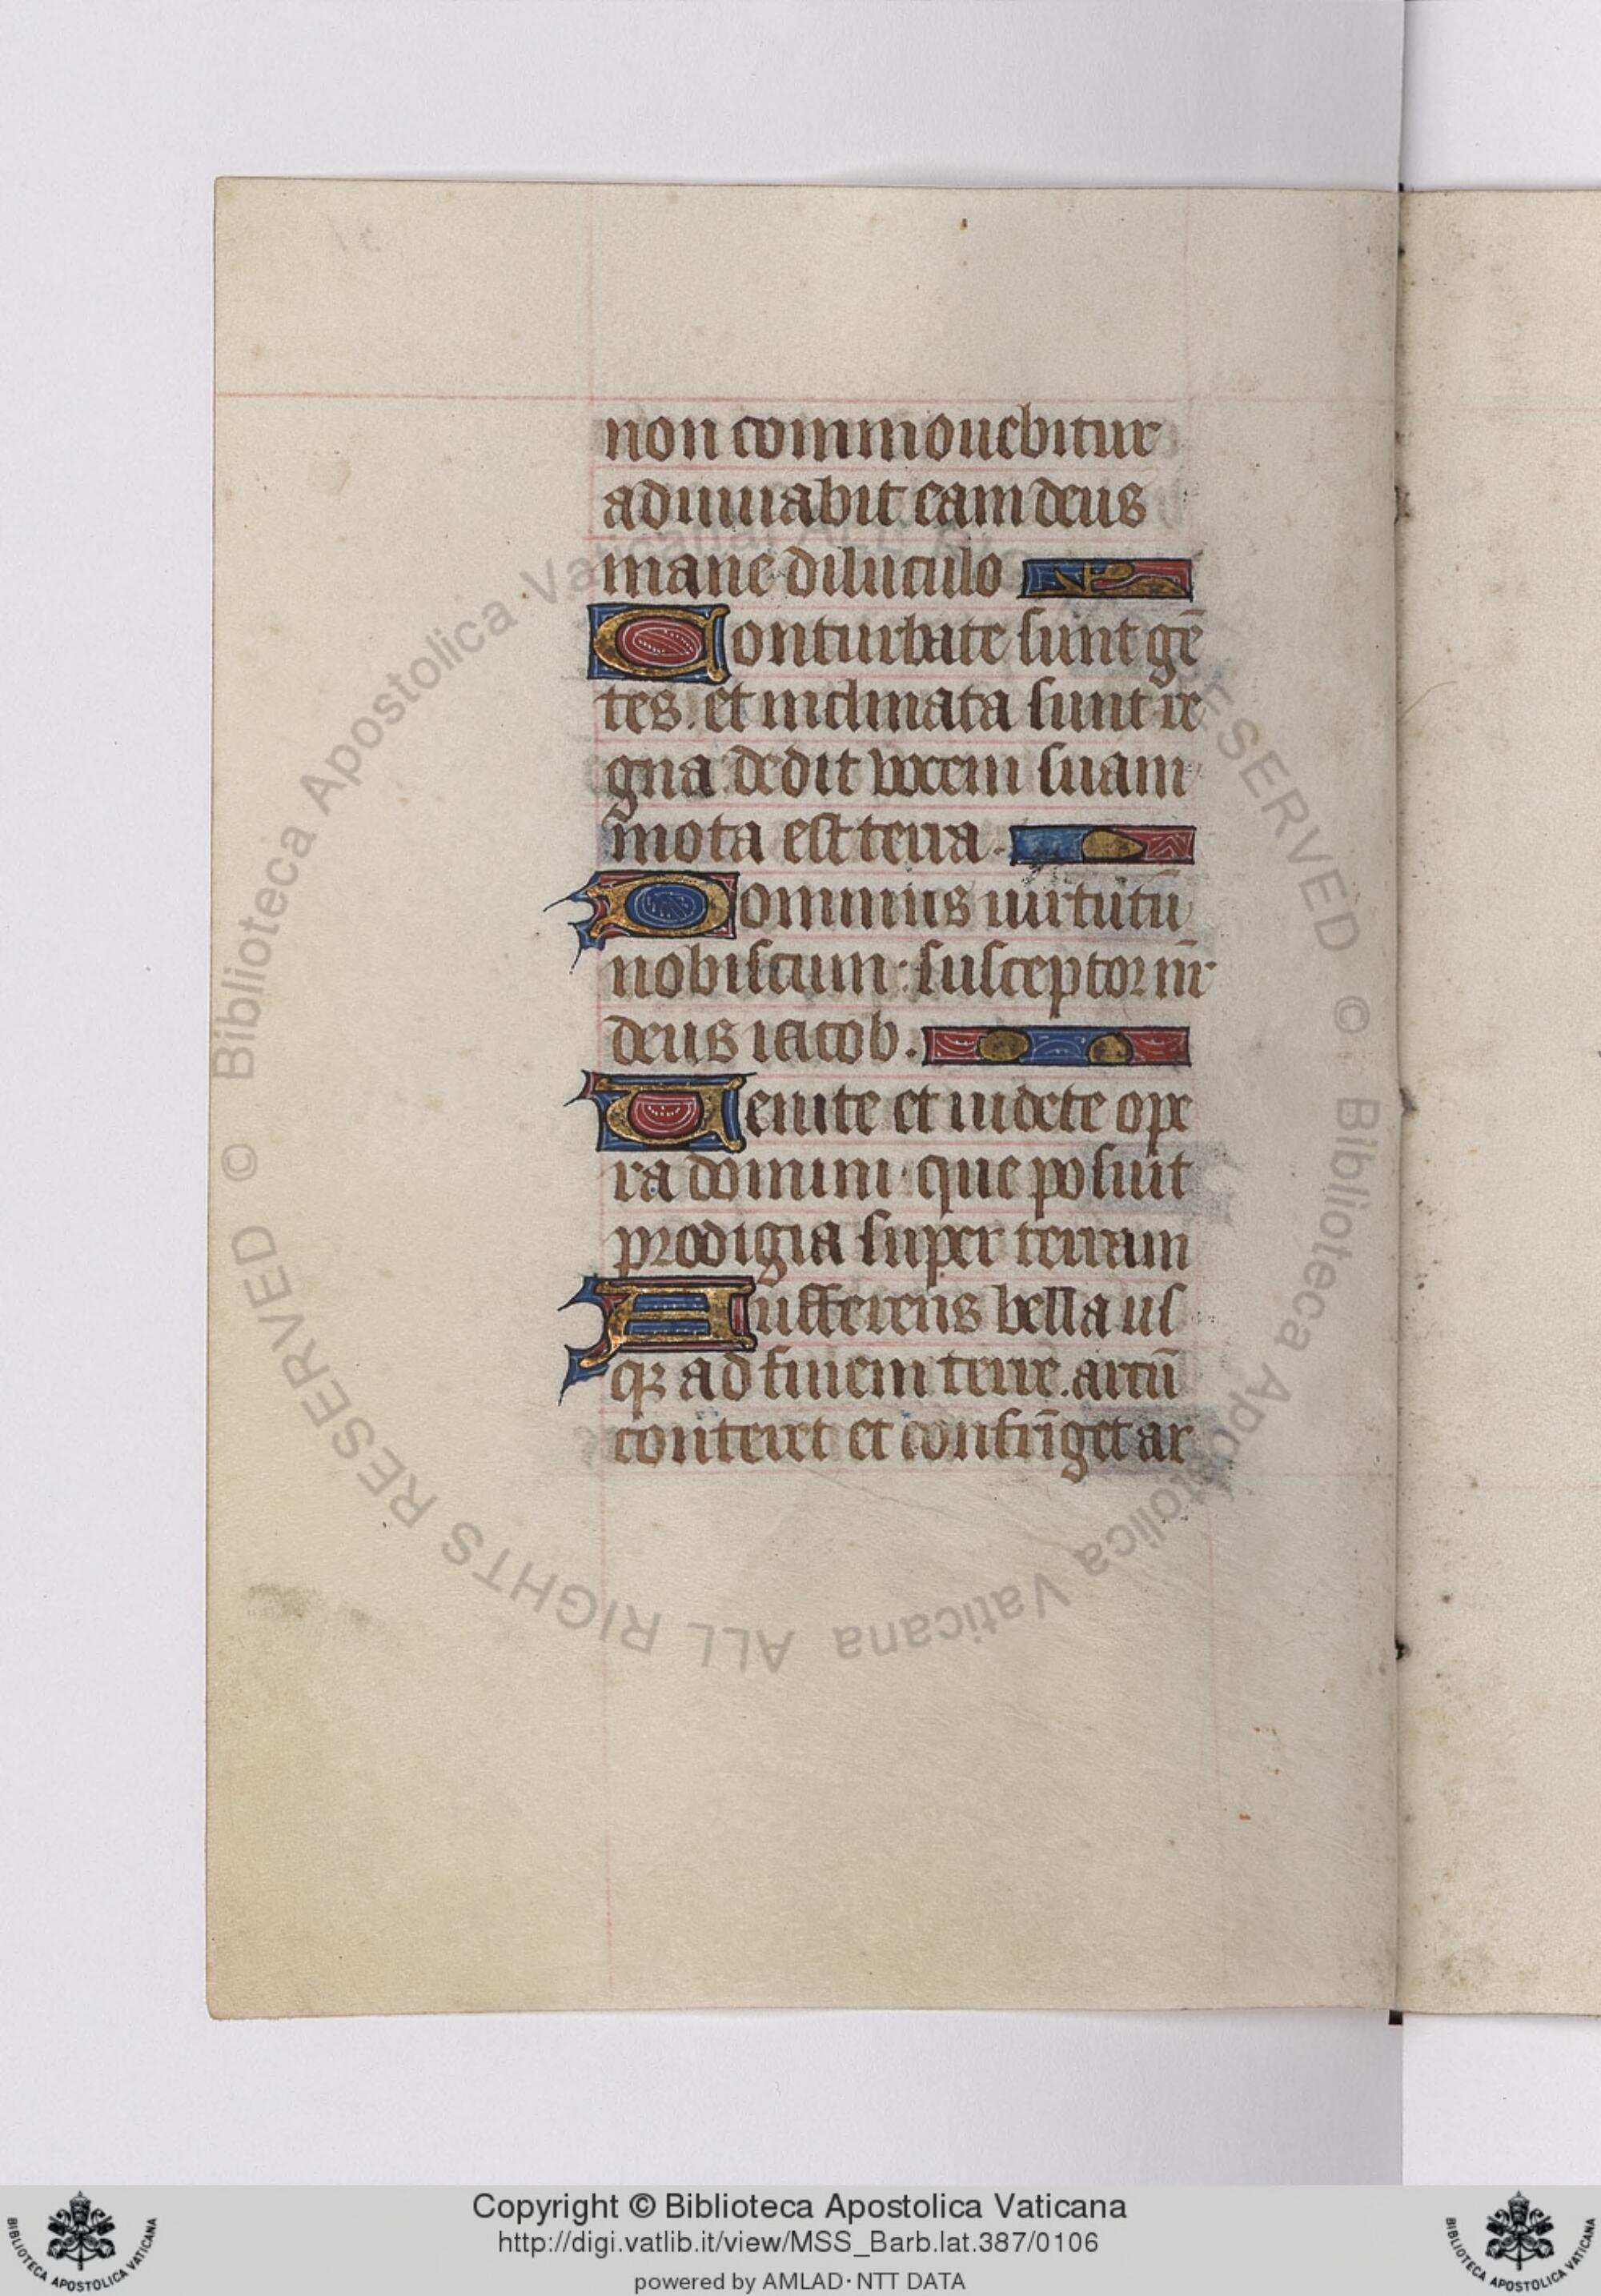 non commouebitur
adiuuabit eam deus
mane diluculo
Conturbate sunt gē
tes. et inclinata sunt re
gna dedit vocem suam
mota est terra.
Dominus uirtutū
nobiscum: susceptor nr̄
deus iacob.
Uenite et uidete ope
ra domini· que posuit
prodigia super terram
Aufferens bella us
qꝫ ad finem terre. arcū
conteret et confrīget ar
© Biblioteca Apostolica Vaticana ALL RIGHTS RESERVED © Biblioteca Apostolica Vaticana ALL RIGHTS RESERVED
Copyright © Biblioteca Apostolica Vaticana
http://digi.vatlib.it/view/MSS_Barb.lat.387/0106
powered by AMLAD·NTT DATA
BIBLIOTECA APOSTOLICA VATICANA
BIBLIOTECA APOSTOLICA VATICANA